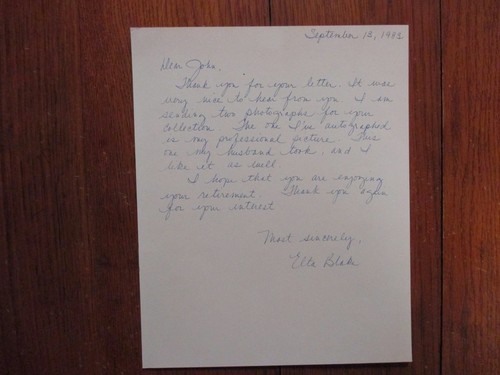 September 12, 1982
Dear John,
Thank you for your letter. It was
very nice to hear from you. I am
sending two photographs for your
collection. The one I've autographed
is my professional picture. This
one my husband took, and I
like it as well.
I hope that you are enjoying
your retirement. Thank you again
for your interest
Most sincerely,
Ella Blake